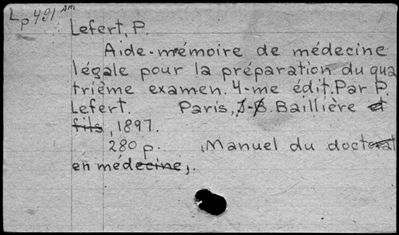 Lp 491 Am
Lefert, P.
Aide-mémoire de médecine
légale pour la préparation du qua
trième examen. 4-me édit. Par P.
Lefert. Paris, J-B. Baillière et
fils, 1897.
280 p. (Manuel du doctorat
en médecine).